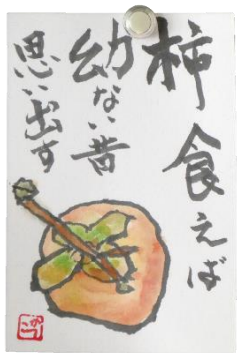 柿食えば
幼ない昔
思い出す